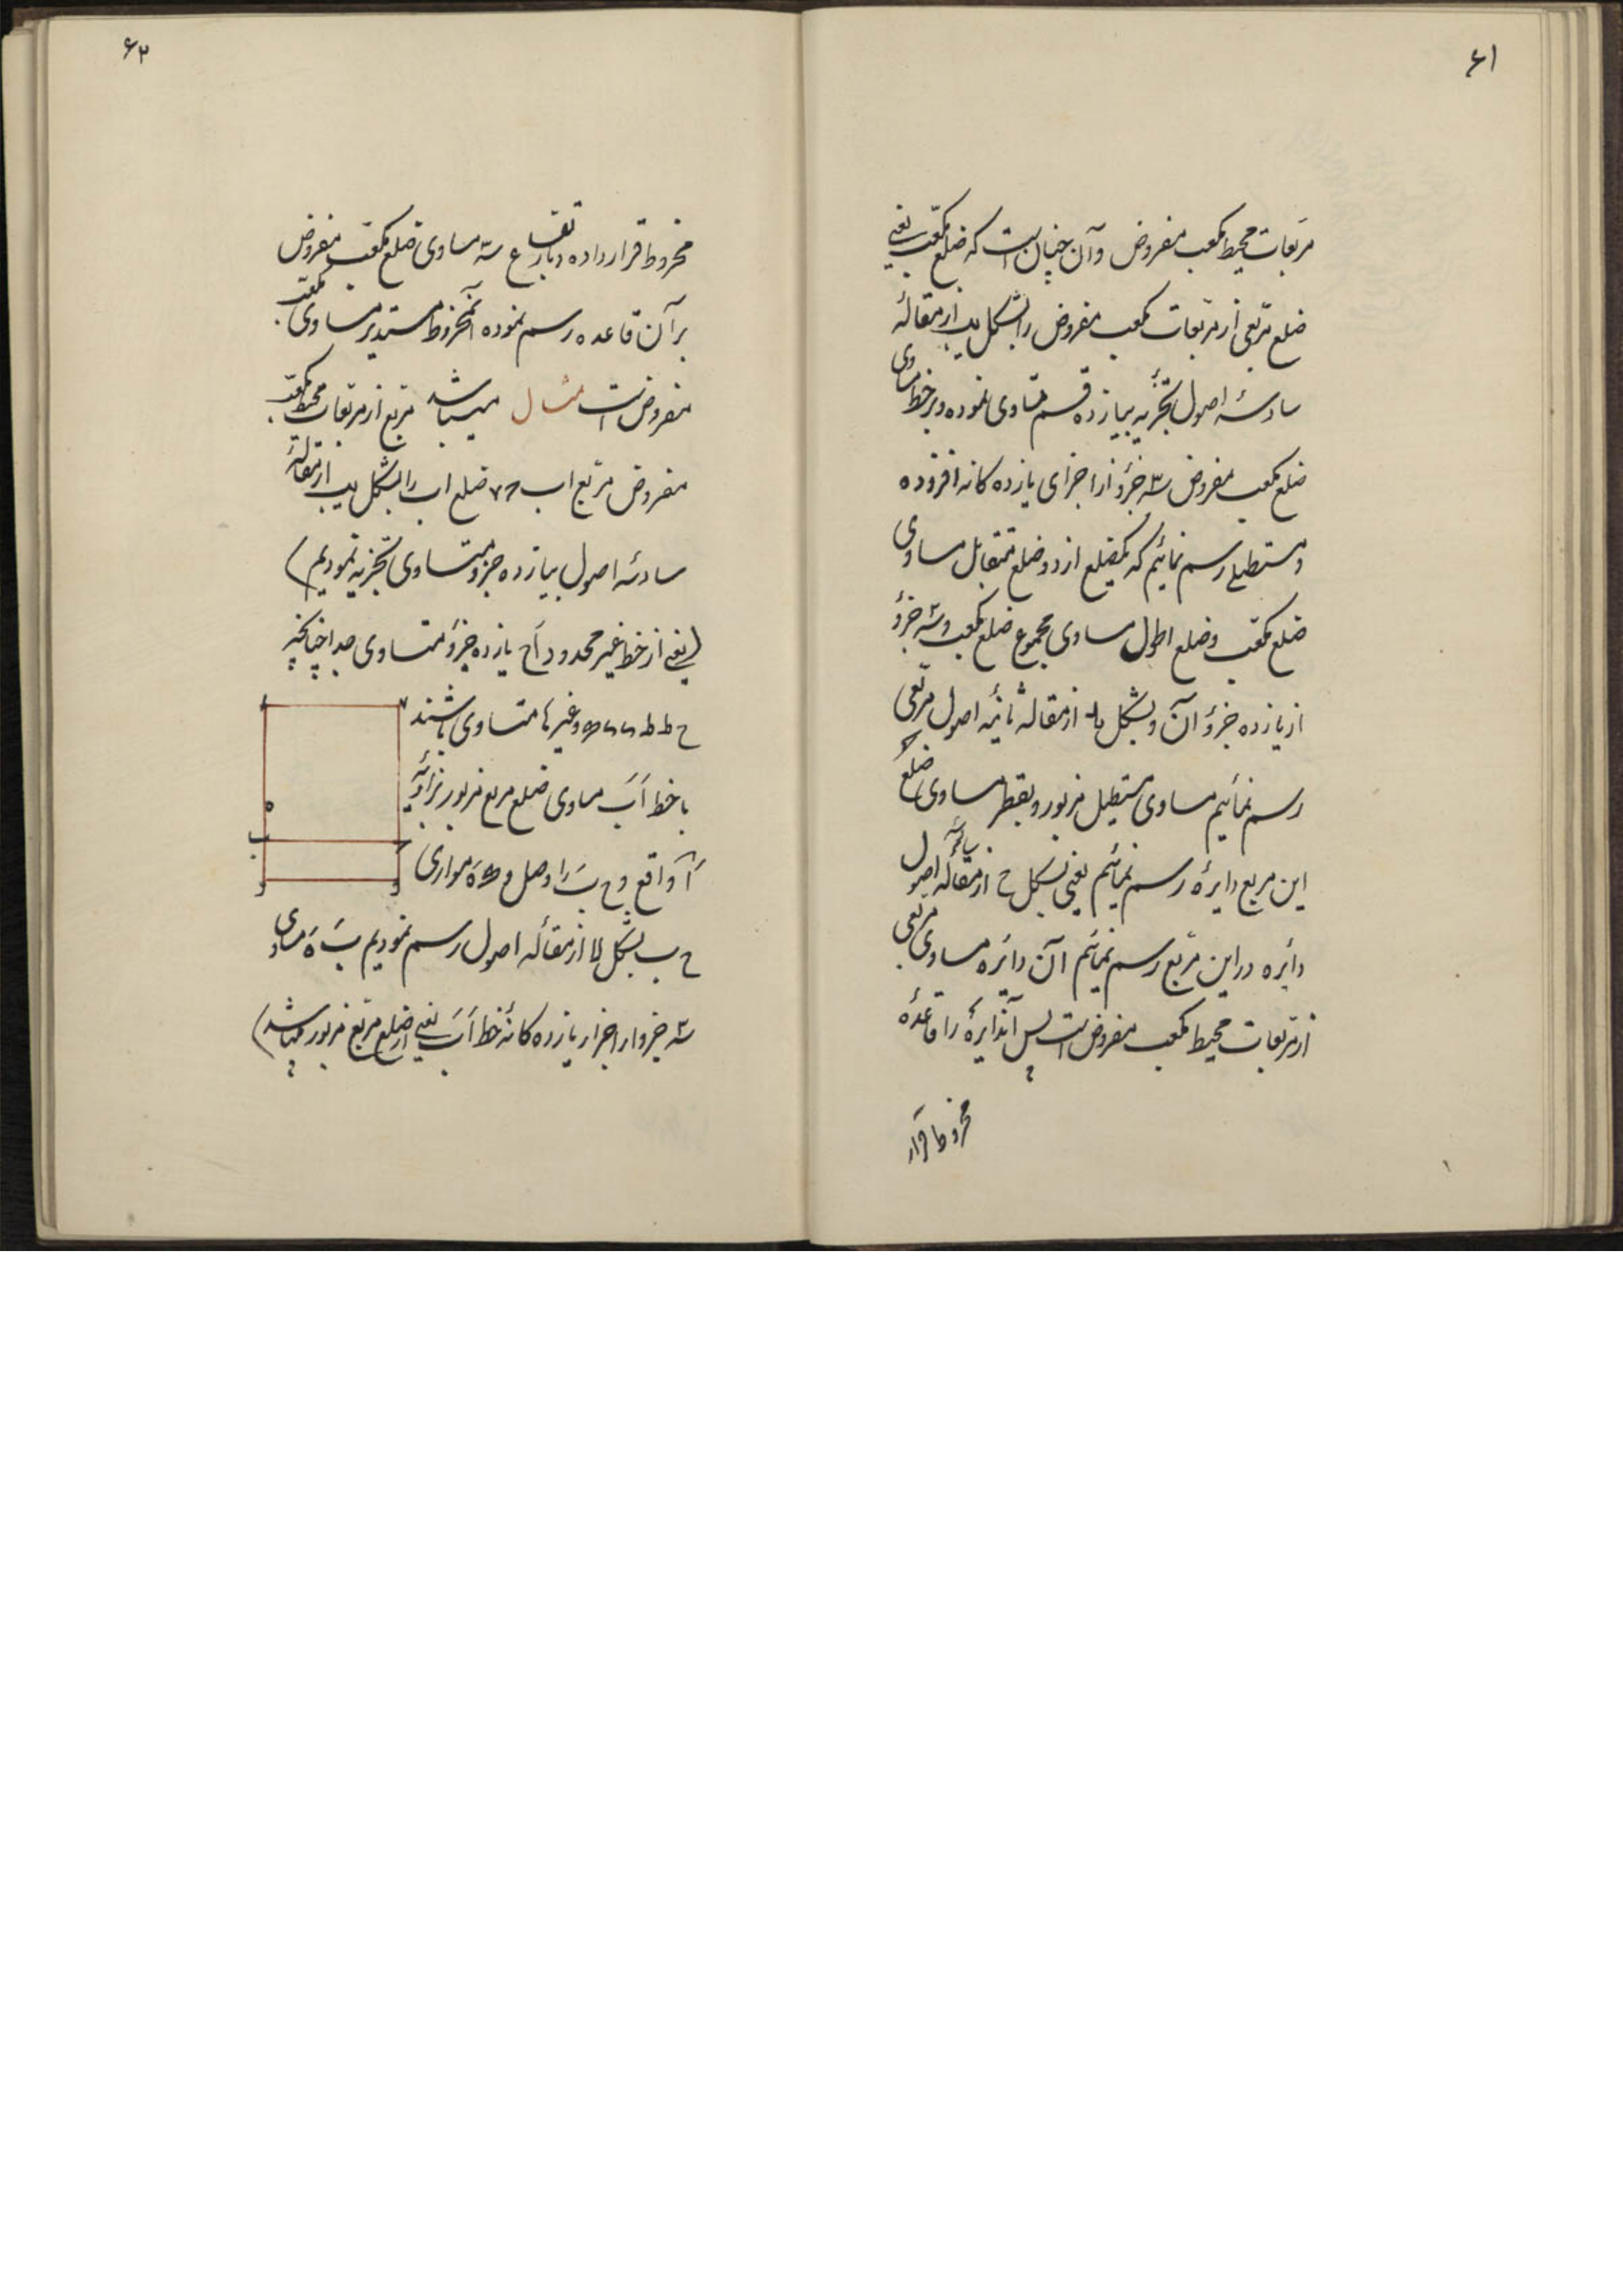 ۶۱
مربعات محیط مکعب مفروض وآن چنان است که ضلع مکعب یعنی
ضلع مربعی از مربعات مکعب مفروض را بشکل یب از مقالهٔ
سادسهٔ اصول تجزیه بیازده قسم متساوی نموده و برخط مساوی
ضلع مکعب مفروض سه جزؤ از اجزای یازده کانه افزوده
و مستطیلی رسم نمائیم که یکضلع از دو ضلع متقابل مساوی
ضلع مکعب و ضلع اطول مساوی مجموع ضلع مکعب و سه جزؤ
از یازده جزؤ آن و بشکل ید از مقاله ثانیه اصول مربعی
رسم نمائیم مساوی مستطیل مزبور و بقطر مساوی ضلع
این مربع دایرهٔ رسم نمائیم یعنی بشکل ح از مقاله رابعهٔ اصول
دائره در این مربع رسم نمائیم آن دائره مساوی مربعی
از مربعات محیط مکعب مفروض است پس آندایرهٔ را قاعدهٔ
مخروط قرار
۶۲
مخروط قرار داده و بارتفاع سه مساوی ضلع مکعب مفروض
برآن قاعده رسم نموده آنمخروط مستدیر مساوی مکعب
مفروض است مثال میباشد مربع از مربعات محیط مکعب
مفروض مربع اب ضلع اب را بشکل یب از مقالهٔ
سادسهٔ اصول بیازده جزؤ متساوی تجزیه نمودیم)
(یعنی از خط غیر محدود اح یازده جزؤ متساوی جدا چنانچه
ح ط ط وغیرها متساوی باشند
با خط اب مساوی ضلع مربع مزبور بزاویه
ا واقع و ح ب را وصل و ه موازی
ح ب بشکل لا از مقاله اصول رسم نمودیم ب ه مساوی
سه جزو از اجزاء یازده کانهٔ خط اب یعنی از ضلع مربع مزبور میباشد)
ا
ه
ب